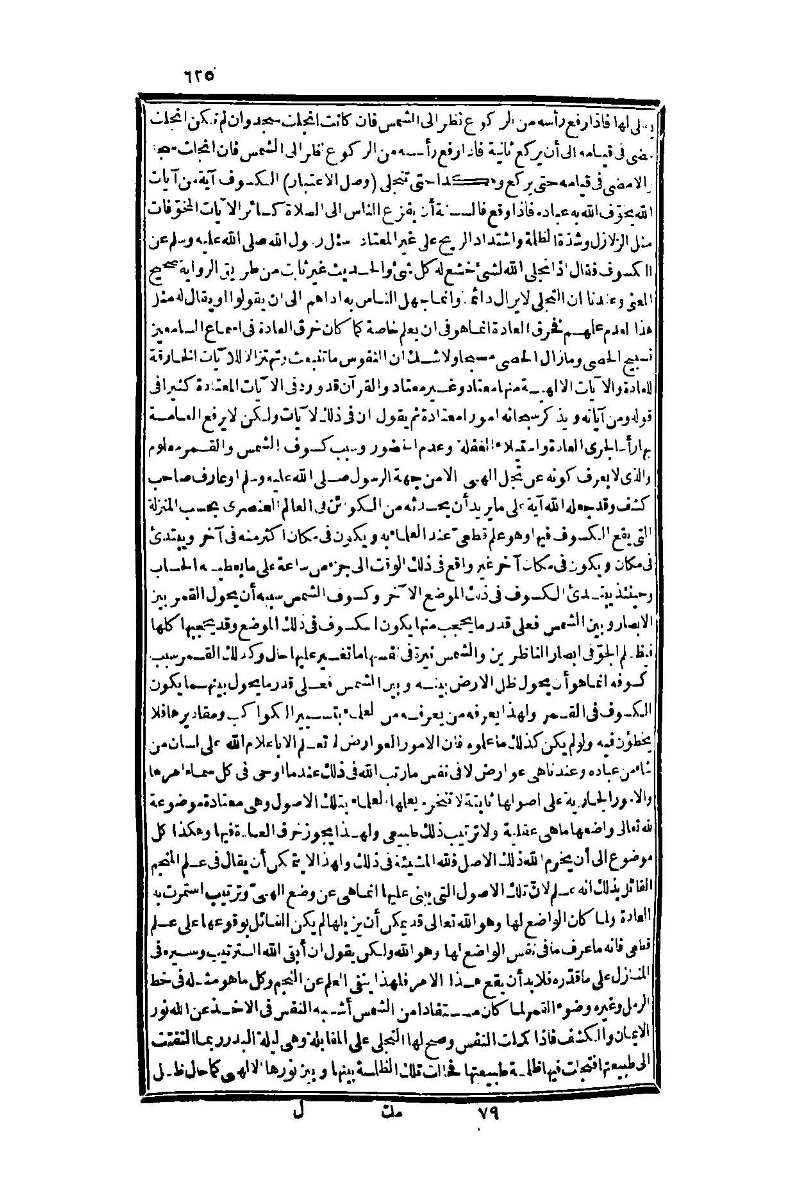 ٦٢٥
يصلى لها فاذا رفع رأسه من الركوع نظر الى الشمس فان كانت انجلت سجد وان لم تكن انجلت
مضى فى قيامه الى أن يركع ثانية فاذا رفع رأسه من الركوع نظر الى الشمس فان انجلت سجد
والا مضى فى قيامه حتى يركع وهكذا حتى تنجلى (وصل الاعتبار) الكسوف آية من آيات
الله يخوّف الله به عباده فاذا وقع فالسنة أن يفزع الناس الى الصلاة كسائر الآيات المخوّفات
مثل الزلازل وشدّة الظلمة واشتداد الريح على غير المعتاد سئل رسول الله صلى الله عليه وسلم عن
الكسوف فقال اذا تجلى الله لشئ خشع له كل شئ والحديث غير ثابت من طريق الرواية صحيح
المعنى وعندنا ان التجلى لا يزال دائما وانما جهل الناس به اداهم الى ان يقولوا او يقال له مثل
هذا لعدم علمهم فخرق العادة انما هو فى ان يعلم خاصة كما كان خرق العادة فى اسماع السامعين
تسبيح الحصى وما زال الحصى مسبحا ولا شك ان النفوس ما تنبعث وتهتز الا للآيات الخارقة
للعادة والآيات الالهية منها معتاد وغير معتاد والقرآن قد ورد فى الآيات المعتادة كثيرا فى
قوله ومن آياته ويذكر سبحانه امورا معتادة ثم يقول ان فى ذلك لآيات ولكن لا يرفع العامة
بها رأسا لجرى العادة واستيلاء الغفلة وعدم الحضور وسبب كسوف الشمس والقمر معلوم
والذى لا يعرف كونه عن تجل الهى الا من جهة الرسول صلى الله عليه وسلم او عارف صاحب
كشف وقد جعله الله آية على ما يريد أن يحدثه من الكوائن فى العالم العنصرى بحسب المنزلة
التى يقع الكسوف فيها وهو علم قطعى عند العلماء به ويكون فى مكان اكثر منه فى آخر ويبتدئ
فى مكان ويكون فى مكان آخر غير واقع فى ذلك الوقت الى جزء من ساعة على ما يعطيه الحساب
وحينئذ يبتدئ الكسوف فى ذلك الموضع الآخر وكسوف الشمس سببه أن يحول القمر بين
الابصار وبين الشمس فعلى قدر ما يحجب منها يكون الكسوف فى ذلك الموضع وقد يحجبها كلها
فيظلم الجوّ فى ابصار الناظرين والشمس نيرة فى نفسها ما تغير عليها حال وكذلك القمر سبب
كسوفه انما هو أن يحول ظل الارض بينه وبين الشمس فعلى قدر ما يحول بينهما يكون
الكسوف فى القمر ولهذا يعرفه من يعرفه من العلماء بتسيير الكواكب ومقاديرها فلا
يخطؤن فيه ولو لم يكن كذلك ما علموه فان الامور العوارض لا تعلم الا باعلام الله على لسان من
شاء من عباده وعندنا هى عوارض لا فى نفس ما رتب الله فى ذلك عندما اوحى فى كل سماء امرها
والامور الجارية على اصولها ثابتة لا تنخرم يعلمها العلماء بتلك الاصول وهى معتادة موضوعة
لله تعالى واضعها ما هى عقلية ولا ترتيب ذلك طبيعى ولهذا يجوز خرق العادة فيها وهكذا كل
موضوع الى أن يخرم الله ذلك الاصل فلله المشيئة فى ذلك ولهذا لا يتمكن أن يقال فى علم المنجم
القائل بذلك انه علم لانّ تلك الاصول التى يبنى عليها انما هى عن وضع الهىّ وترتيب استمرت به
العادة ولما كان الواضع لها وهو الله تعالى قد يمكن أن يزيلها لم يكن القائل بوقوعها على علم
قطعى فانه ما عرف ما فى نفس الواضع لها وهو الله ولكن يقول ان أبقى الله الترتيب وسيره فى
المنازل على ما قدره فلا بد أن يقع هذا الامر فلهذا ينفى العلم عن النجم وكل ما هو مثله فى خط
الرمل وغيره وضوء القمر لما كان مستفادا من الشمس أشبه النفس فى الاخذ عن الله نور
الايمان والكشف فاذا كملت النفس وصح لها التجلى على المقابلة وهى ليلة البدر ربما التفتت
الى طبيعتها فتجلت فيها ظلمة طبيعتها فحالت تلك الظلمة بينها وبين نورها الالهى كما حال ظل
٧٩ مك ل